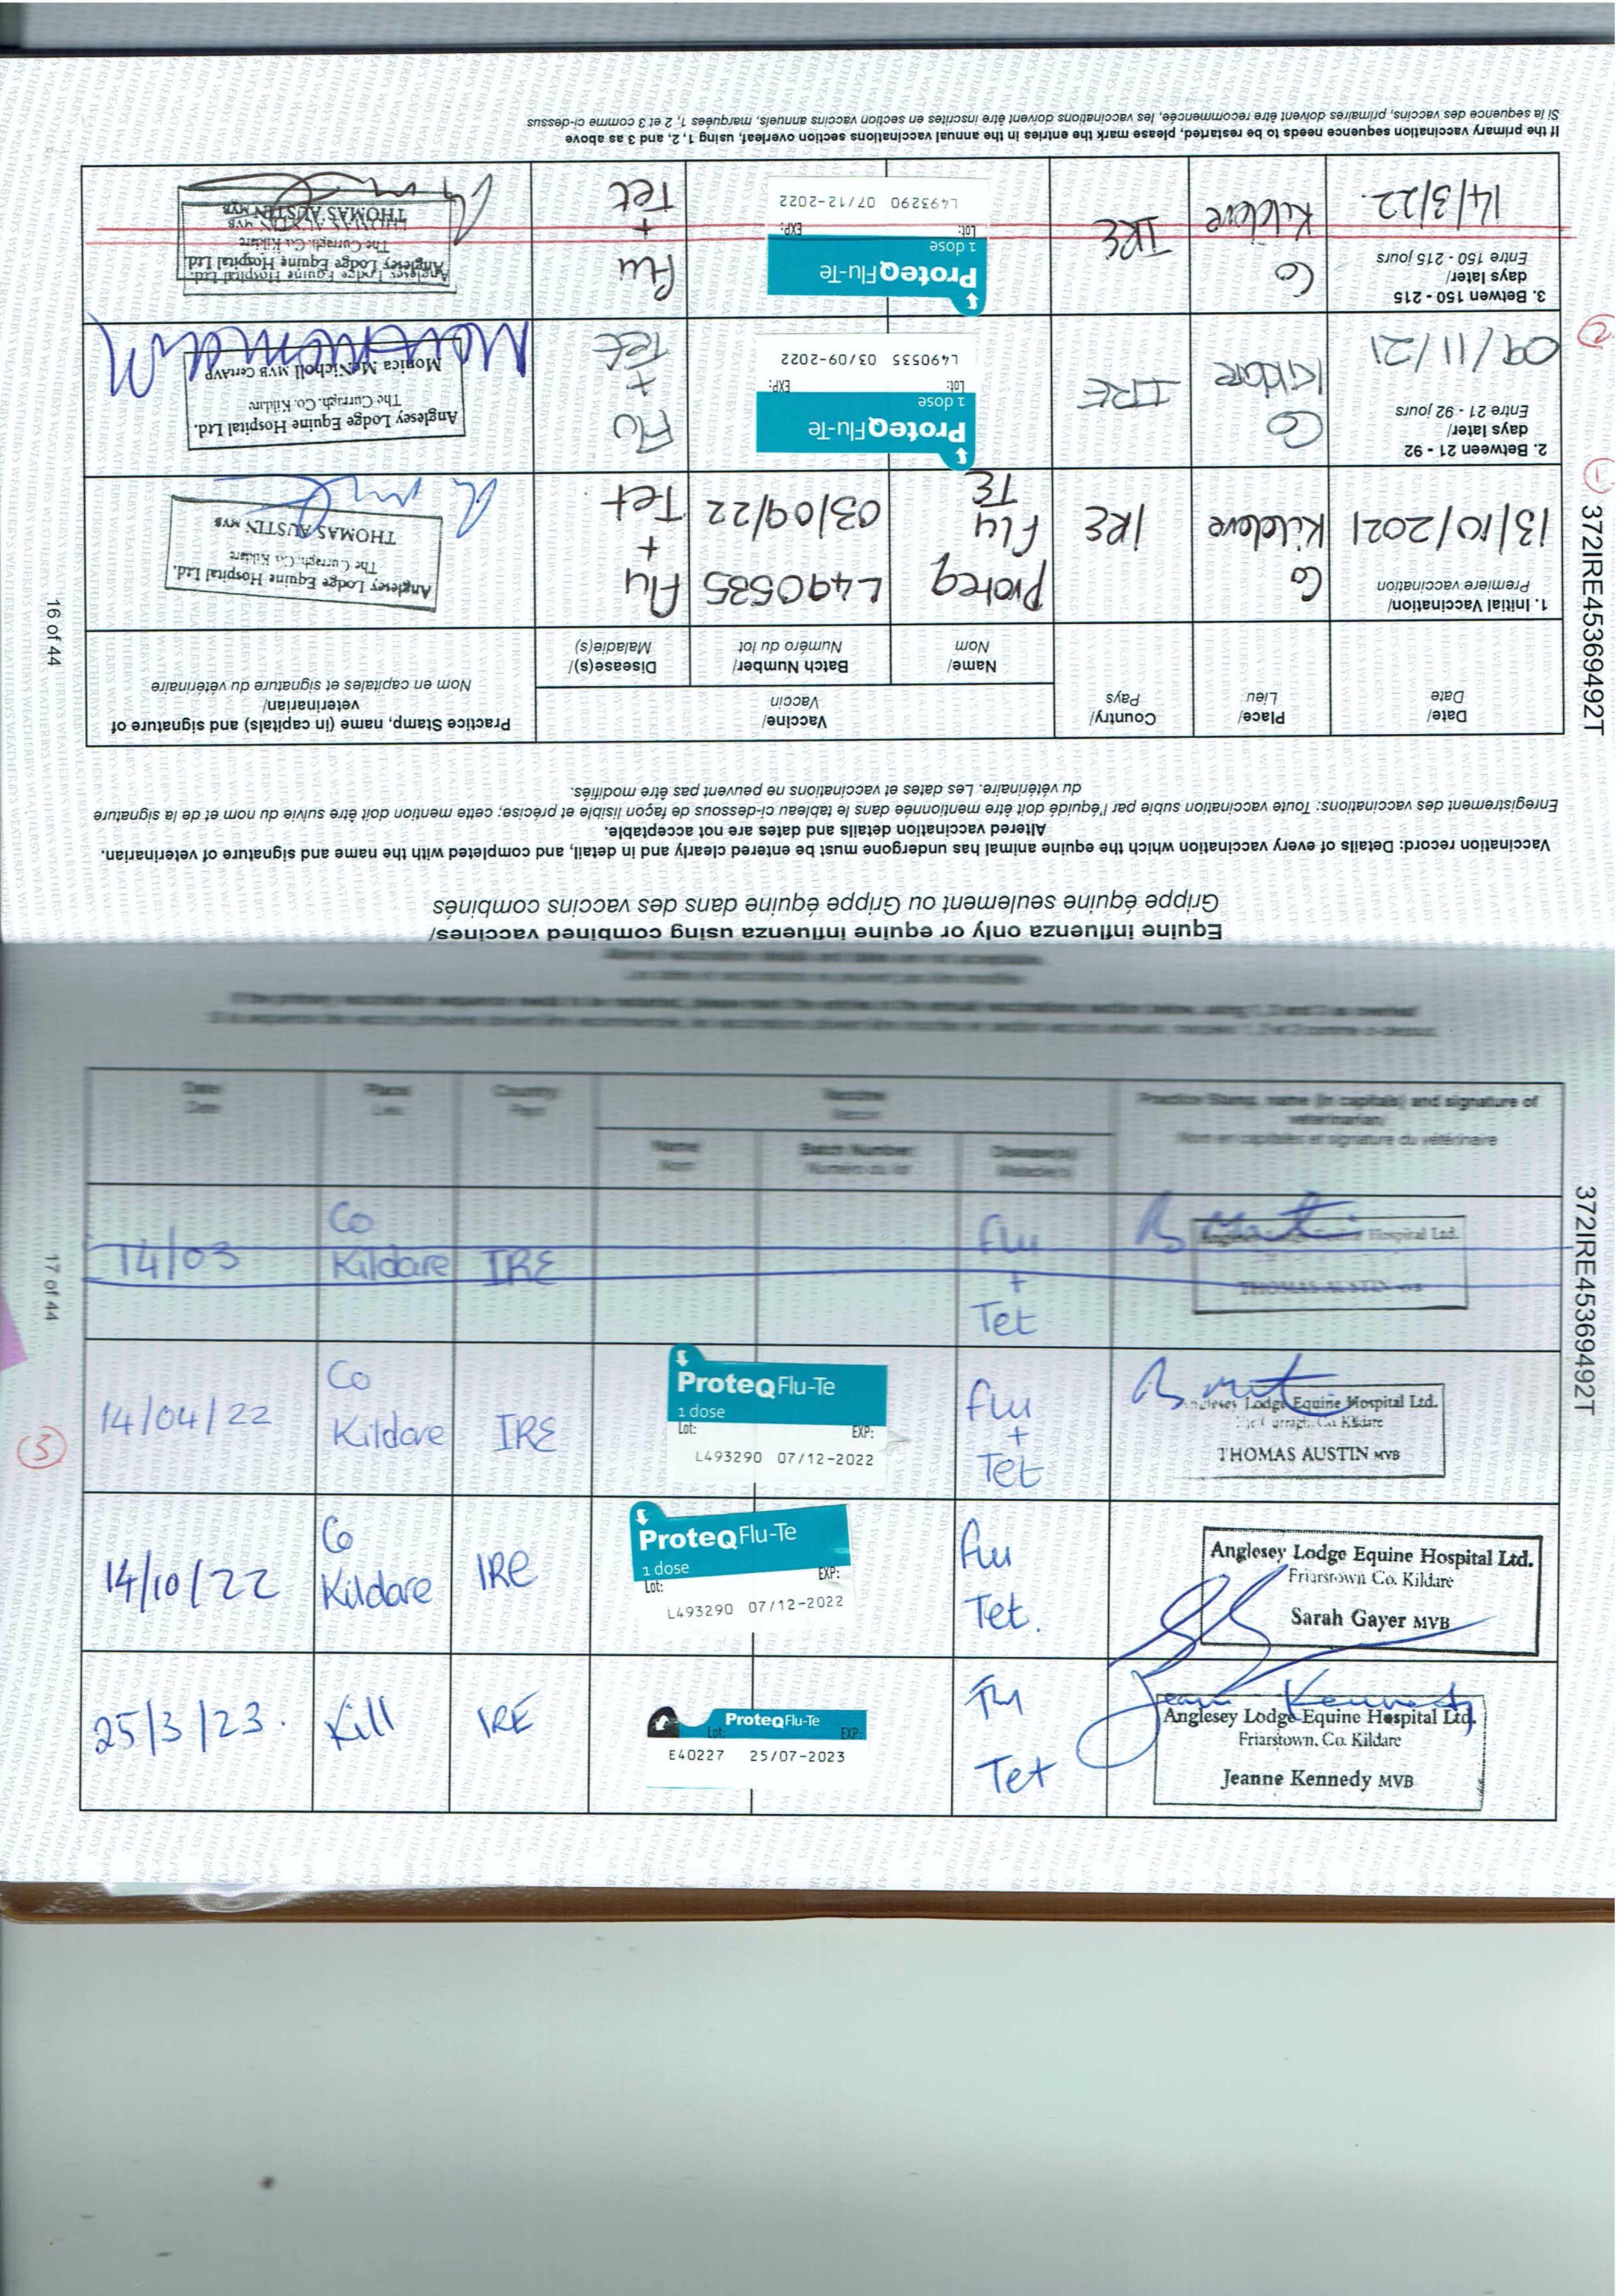 Equine influenza only or equine influenza using combined vaccines/
Grippe équine seulement ou Grippe équine dans des vaccins combinés
Vaccination record: Details of every vaccination which the equine animal has undergone must be entered clearly and in detail, and completed with the name and signature of veterinarian.
Altered vaccination details and dates are not acceptable.
Enregistrement des vaccinations: Toute vaccination subie par l'équidé doit être mentionnée dans le tableau ci-dessous de façon lisible et précise; cette mention doit être suivie du nom et de la signature
du vétérinaire. Les dates et vaccinations ne peuvent pas être modifiés.
Date/
Date
Place/
Lieu
Country/
Pays
Vaccine/
Vaccin
Name/
Nom
Batch Number/
Numéro du lot
Disease(s)/
Maladie(s)
Practice Stamp, name (in capitals) and signature of
veterinarian/
Nom en capitales et signature du vétérinaire
1. Initial Vaccination/
Premiere vaccination
13/10/2021
Co
Kildare
IRE
Proteq
Flu
TE
L490535
03/09/22
Flu
+
Tet
Anglesey Lodge Equine Hospital Ltd.
The Curragh. Co. Kildare
THOMAS AUSTIN MVB
2. Between 21 - 92
days later/
Entre 21 - 92 jours
09/11/21
Co
Kildare
IRE
ProteqFlu-Te
1 dose
Lot: EXP:
L490535 03/09-2022
Flu
+
Tet
Anglesey Lodge Equine Hospital Ltd.
The Curragh. Co. Kildare
Monica McNicholl MVB CertAVP
3. Betwen 150 - 215
days later/
Entre 150 - 215 jours
14/3/22.
Co
Kildare
IRE
ProteqFlu-Te
1 dose
Lot: EXP:
L493290 07/12-2022
Flu
+
Tet
Anglesey Lodge Equine Hospital Ltd.
The Curragh. Co. Kildare
THOMAS AUSTIN MVB
If the primary vaccination sequence needs to be restarted, please mark the entries in the annual vaccinations section overleaf, using 1, 2, and 3 as above
Si la sequence des vaccins, primaires doivent être recommencée, les vaccinations doivent être inscrites en section vaccins annuels, marquées 1, 2 et 3 comme ci-dessus
372IRE45369492T
1
2
16 of 44
Date
Date
Place
Lieu
Country
Pays
Vaccine
Vaccin
Name
Nom
Batch Number
Numéro du lot
Disease(s)
Maladie(s)
Practice Stamp, name (in capitals) and signature of
veterinarian
Nom en capitales et signature du vétérinaire
14/03
Co
Kildare
IRE
Flu
+
Tet
Anglesey Lodge Equine Hospital Ltd.
THOMAS AUSTIN MVB
14/04/22
Co
Kildare
IRE
ProteqFlu-Te
1 dose
Lot: EXP:
L493290 07/12-2022
Flu
+
Tet
Anglesey Lodge Equine Hospital Ltd.
The Curragh. Co. Kildare
THOMAS AUSTIN MVB
14/10/22
Co
Kildare
IRE
ProteqFlu-Te
1 dose
Lot: EXP:
L493290 07/12-2022
Flu
Tet.
Anglesey Lodge Equine Hospital Ltd.
Friarstown Co. Kildare
Sarah Gayer MVB
25/3/23.
Kill
IRE
ProteqFlu-Te
Lot: EXP:
E40227 25/07-2023
Flu
Tet
Jeanne Kennedy
Anglesey Lodge Equine Hospital Ltd.
Friarstown, Co. Kildare
Jeanne Kennedy MVB
372IRE45369492T
3
17 of 44